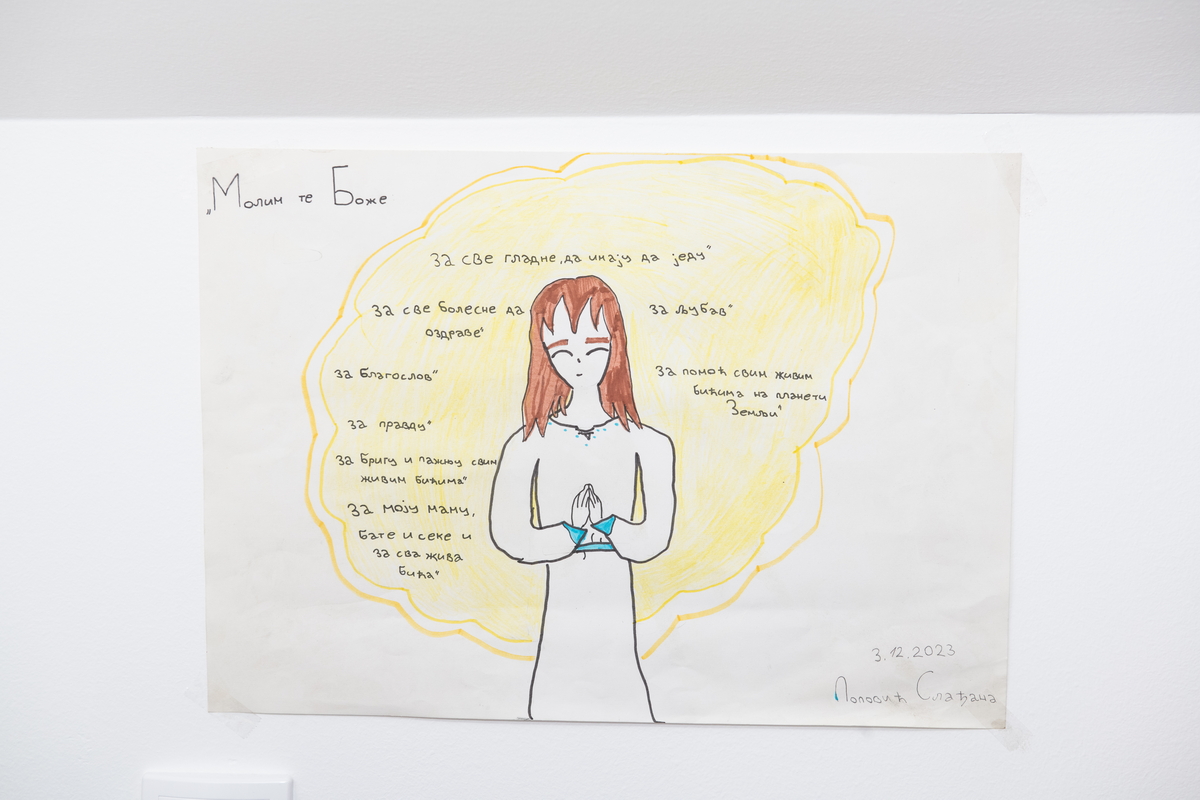 „Молим те Боже
за све гладне, да имају да једу"
за све болесне да
оздраве"
за љубав"
за благослов"
за помоћ свим живим
бићима на планети
Земљи"
за правду"
за бригу и пажњу свим
живим бићима"
за моју маму,
бате и секе и
за сва жива
бића"
3.12.2023
Поповић Слађана